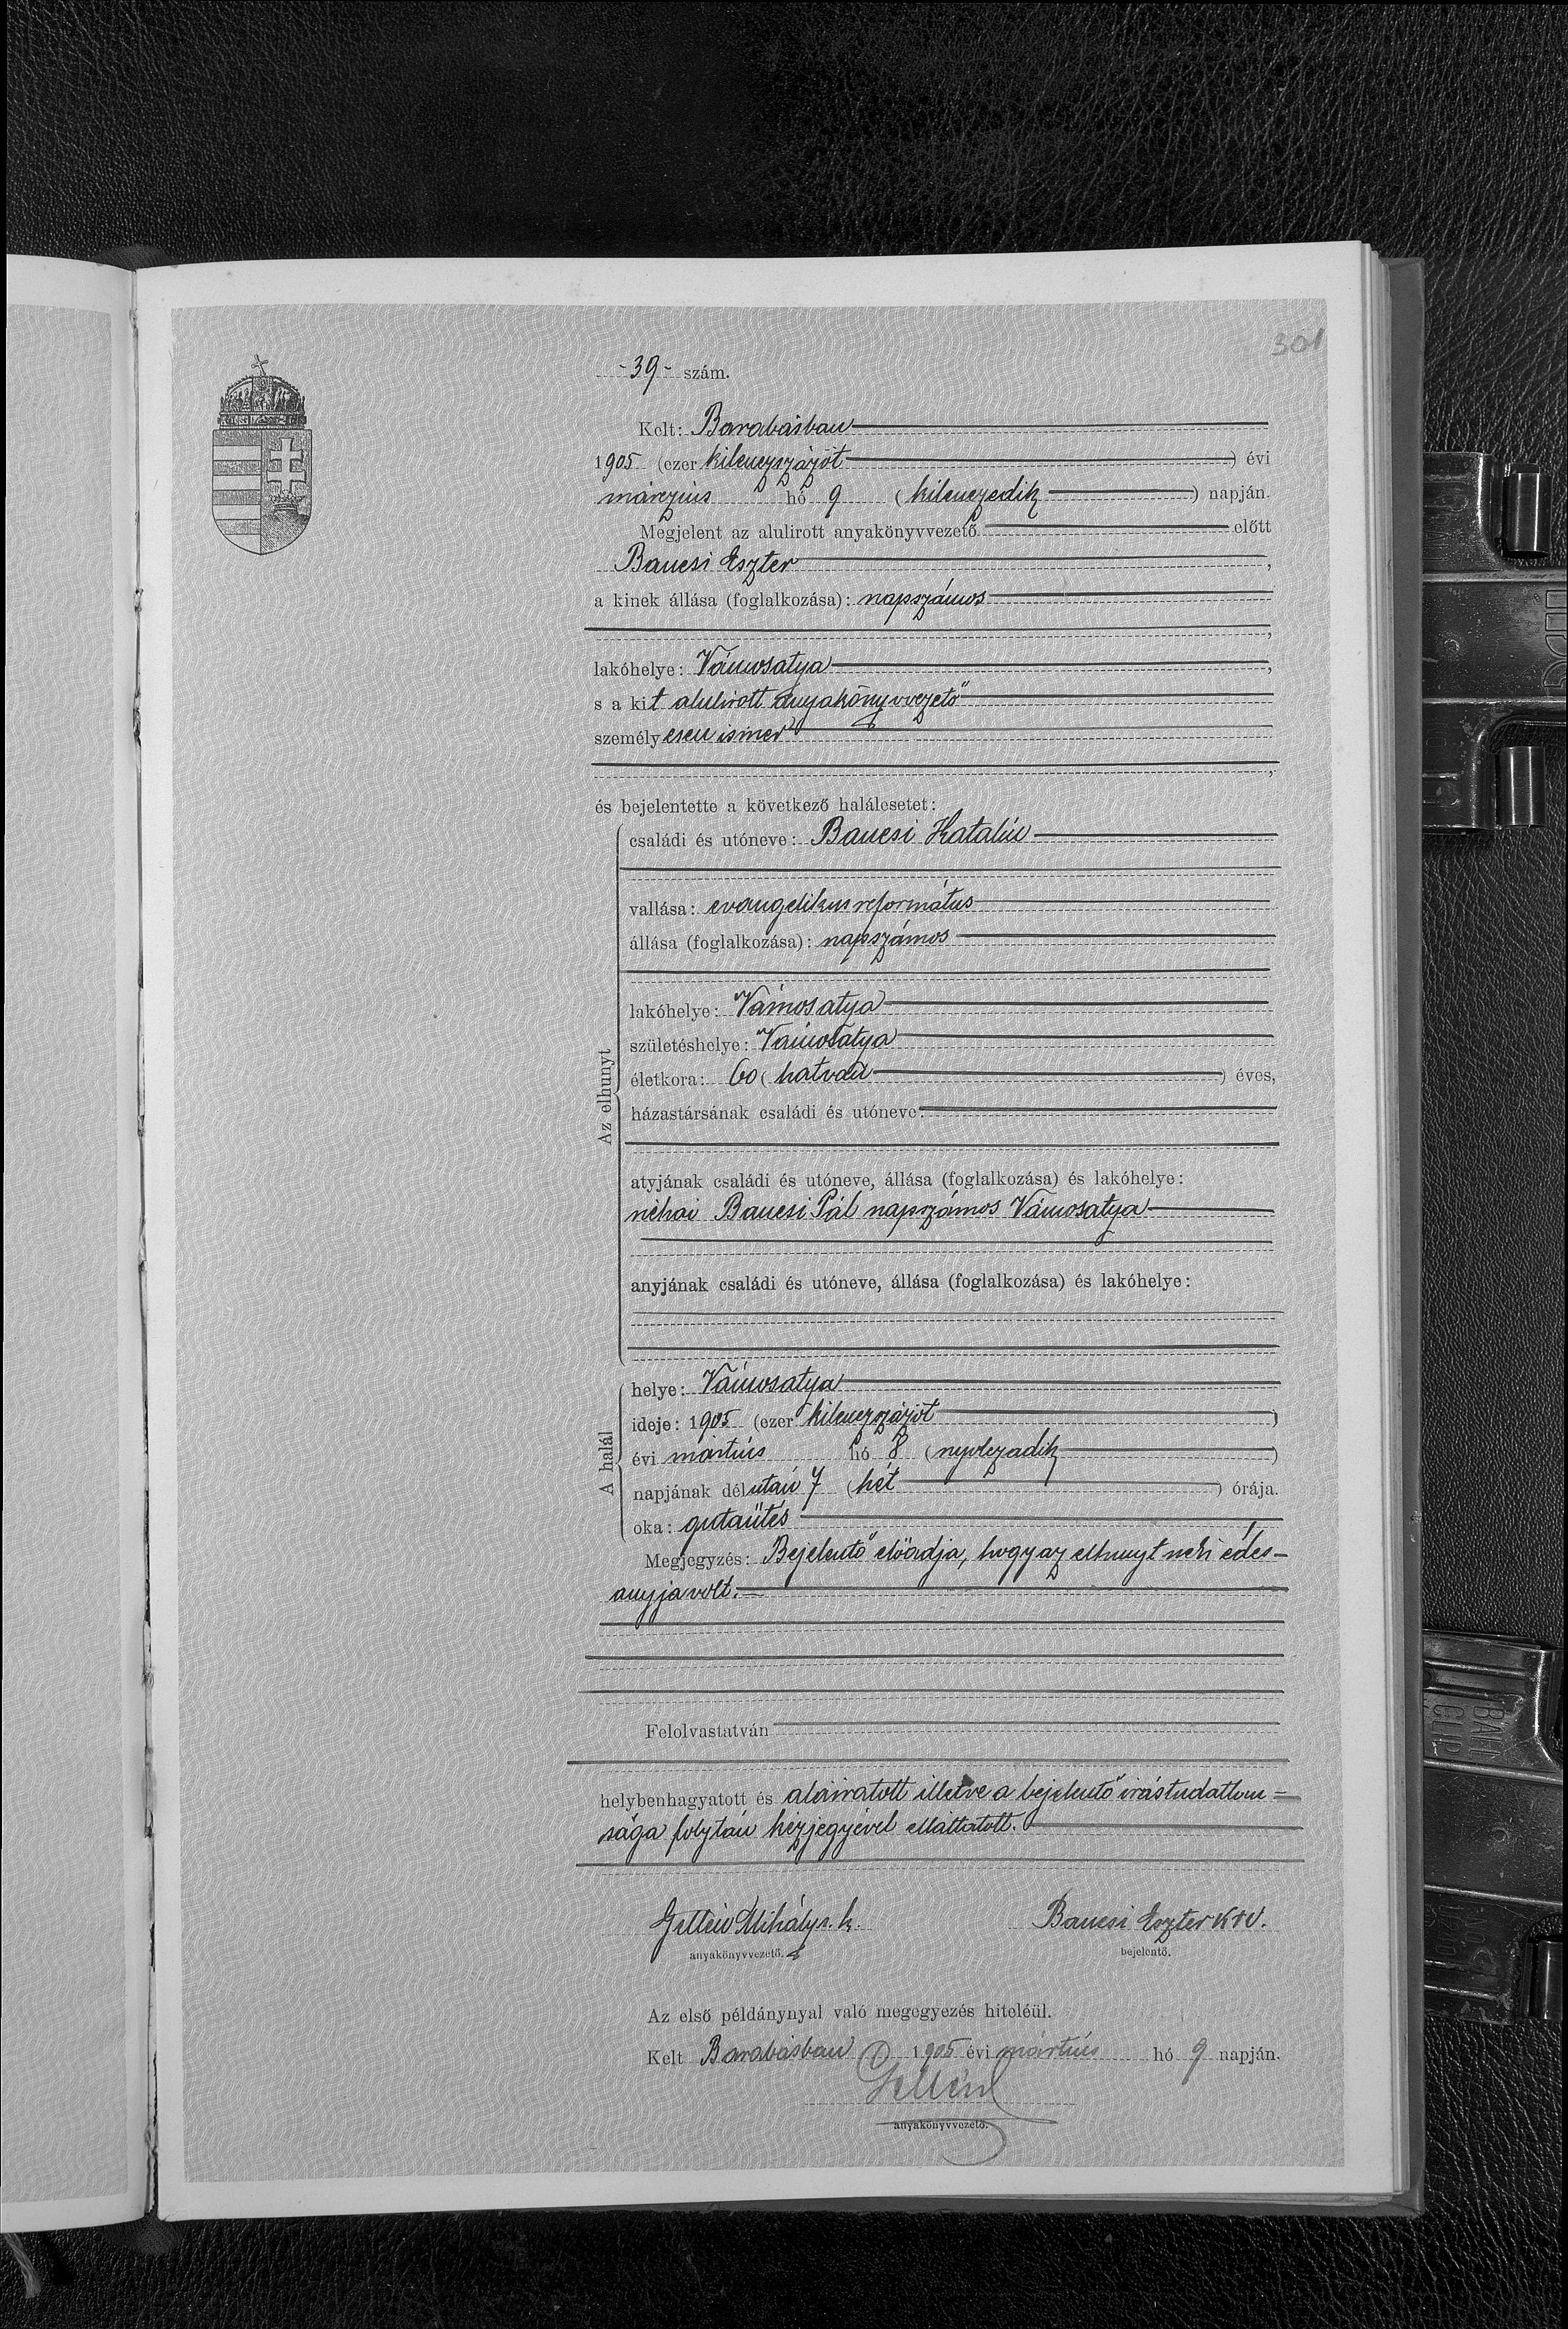 301
- 39 - szám.
Kelt: Barabásban
1905 (ezer kilenczszázöt) évi
márczius hó 9 (kilenczedik) napján.
Megjelent az alulirott anyakönyvvezető előtt
Bancsi Eszter,
a kinek állása (foglalkozása): napszámos
,
lakóhelye: Vámosatya,
s a kit alulirott anyakönyvvezető
személyesen ismer
,
és bejelentette a következő halálesetet:
Az elhunyt
családi és utóneve: Bancsi Katalin
vallása: evangelikus református
állása (foglalkozása): napszámos
lakóhelye: Vámosatya
születéshelye: Vámosatya
életkora: 60 (hatvan) éves,
házastársának családi és utóneve:
atyjának családi és utóneve, állása (foglalkozása) és lakóhelye:
néhai Bancsi Pál napszámos Vámosatya
anyjának családi és utóneve, állása (foglalkozása) és lakóhelye:
A halál
helye: Vámosatya
ideje: 1905 (ezer kilenczszázöt)
évi mártius hó 8 (nyolczadik)
napjának délután 7 (hét) órája.
oka: gutaütés
Megjegyzés: Bejelentő előadja, hogy az elhunyt neki édes-
anyja volt.
Felolvastatván
helybenhagyatott és aláiratott illetve a bejelentő irástudatlan=
sága folytán kézjegyével elláttatott.
Gellén Mihály s. k. Bancsi Eszter K+V.
anyakönyvvezető. bejelentő.
Az első példánynyal való megegyezés hiteléül.
Kelt Barabásban 1905 évi mártius hó 9 napján.
Gellén
anyakönyvvezető.
BALL
CLIP